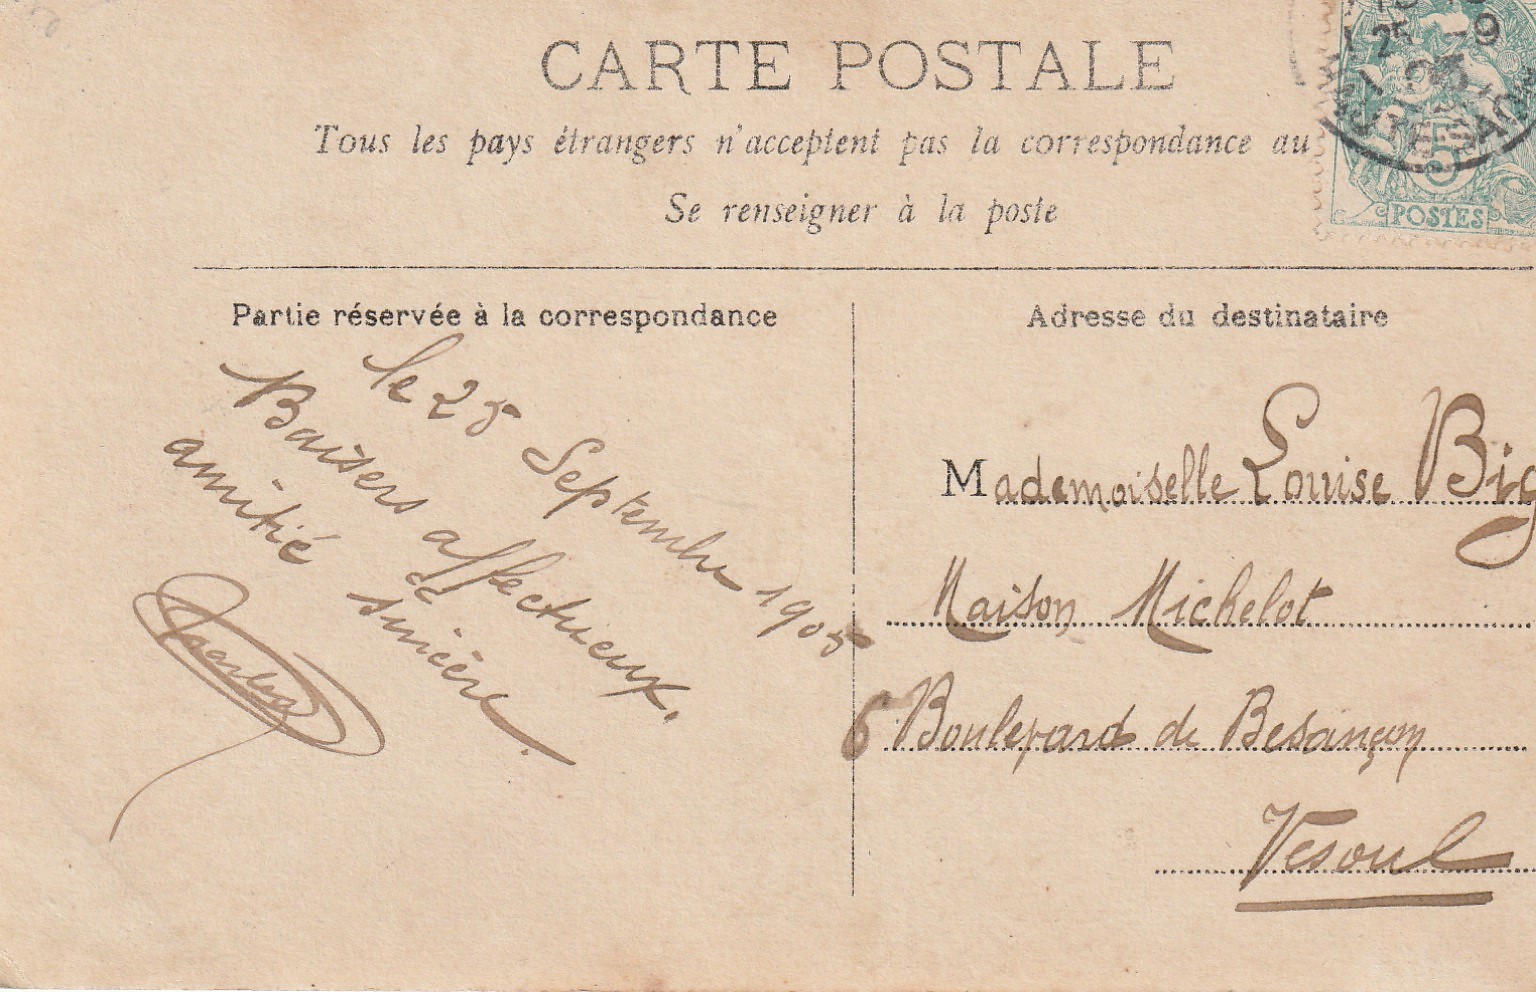 CARTE POSTALE
Tous les pays étrangers n'acceptent pas la correspondance au
Se renseigner à la poste
25 -9
05
POSTES
Partie réservée à la correspondance
le 25 Septembre 1905
Baisers affectueux.
amitié sincère.
Adresse du destinataire
Mademoiselle Louise Big
Maison Michelot
6 Boulevard de Besançon
Vesoul